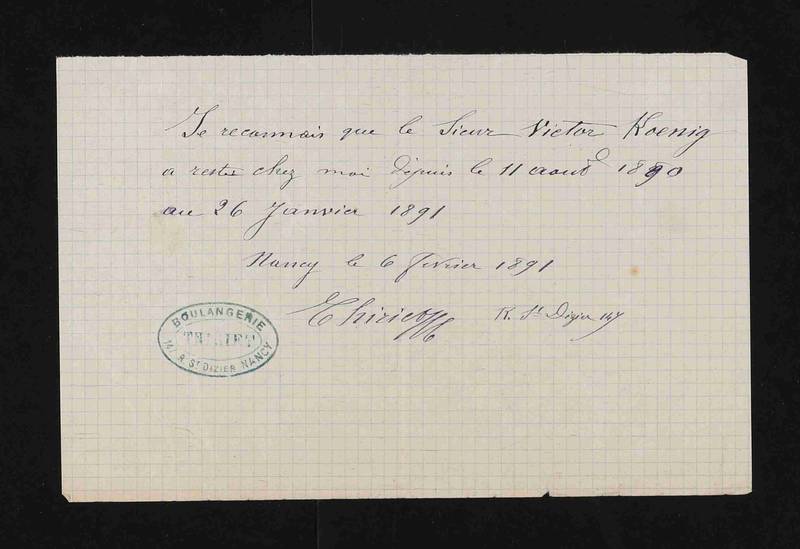 Je reconnais que le Sieur Victor Koenig
a resté chez moi depuis le 11 aout 1890
au 26 Janvier 1891
Nancy le 6 fevrier 1891
Thiriet R. St Dizier 147
BOULANGERIE
THIRIET
147 R. ST DIZIER NANCY